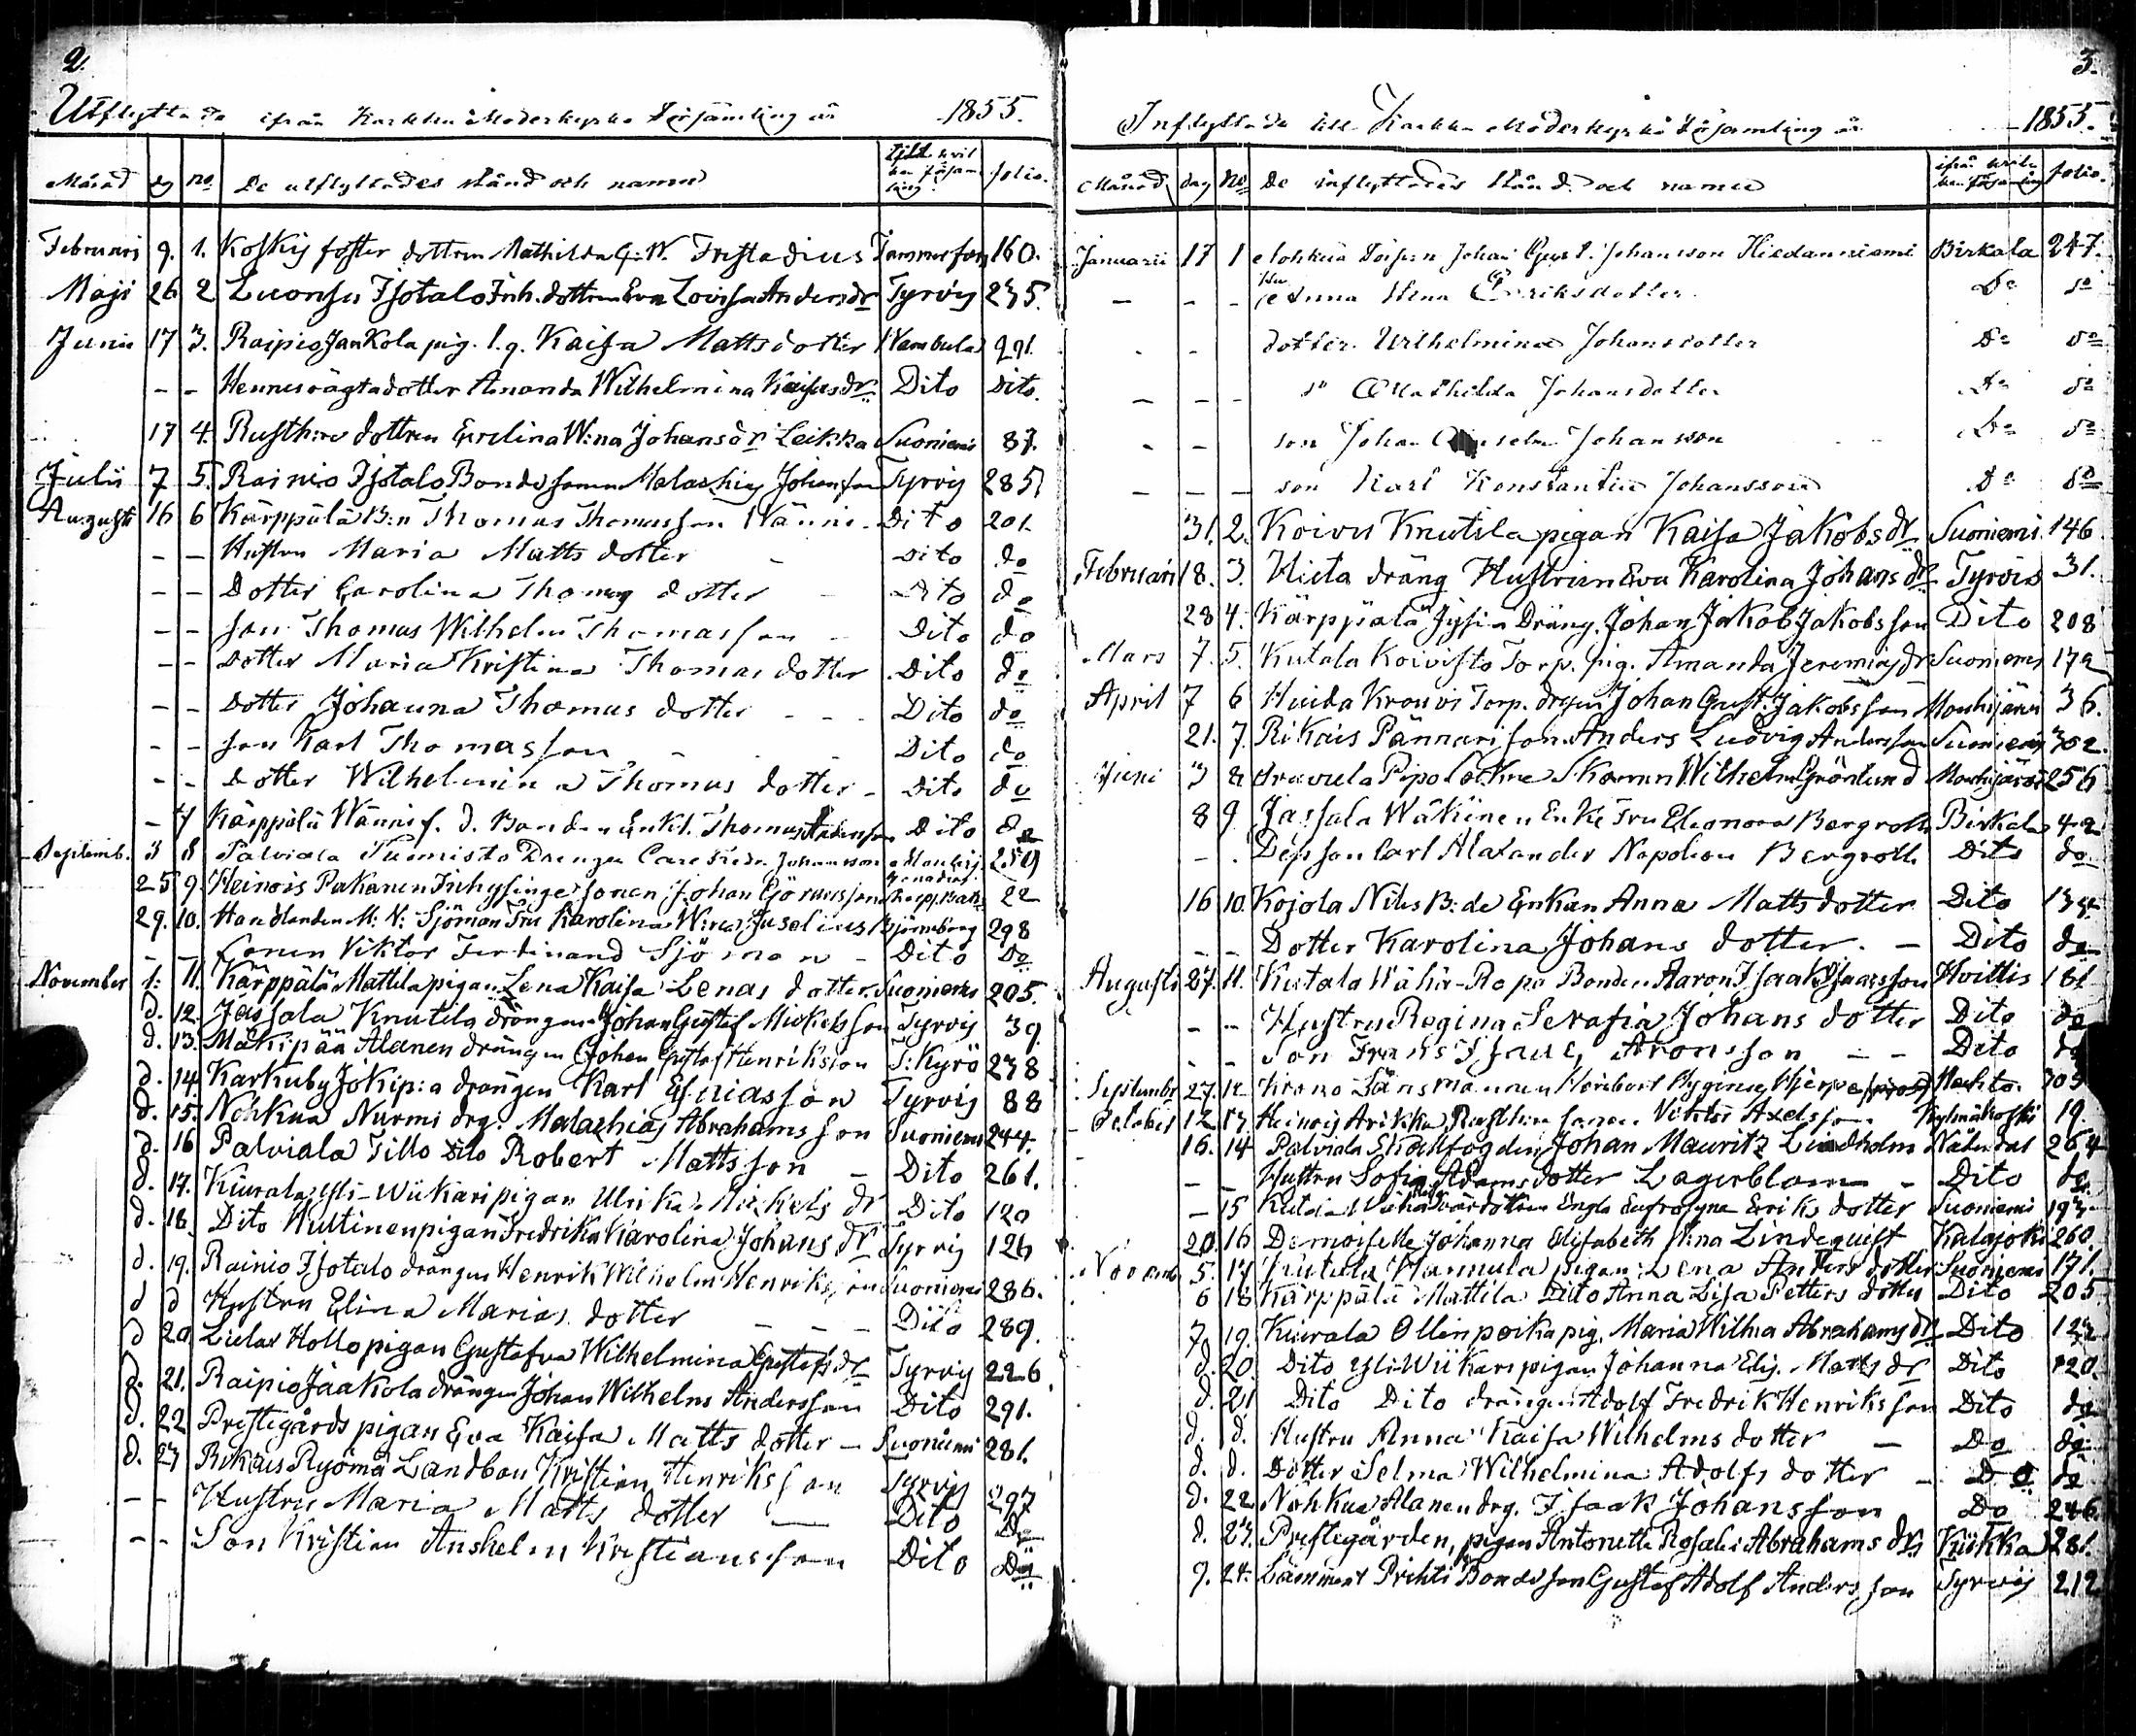 2.
Utflyttade ifrån Karkku Moderkyrko Församling år 1855.
Månad dg no De utflyttades stånd och namn Till hvilken församling folio.
Februari 9. 1. Koskis foster dottren Mathilda G. W. Fristadius Tammerfors 160.
Maji 26 2 Luonsu Isotalo Inh. dottren Eva Lovisa Andersdr Tyrvis 235.
Junii 17 3. Raipio Jaakola pig. l.q. Kaisa Mattsdotter Wambula 291.
– – Hennes oägta dotter Amanda Wilhelmina Kaisasdr Dito Dito.
17 4. Rusth:re dottren Evelina W:na Johansdr Leikka Suoniemi 87.
Julii 7 5. Rainio Isotalo Bondesonen Malachias Johansson Tyrvis 285
Augusti 16 6 Kärppälä B:n Thomas Thomasson Wänni Dito 201.
– – Hustru Maria Matts dotter Dito do
– – Dotter Carolina Thomas dotter Dito do
– – Son Thomas Wilhelm Thomasson Dito do
– – Dotter Maria Kristina Thomas dotter Dito do
– – Dotter Johanna Thomas dotter Dito do
– – Son Karl Thomasson Dito do
– – Dotter Wilhelmina Thomas dotter Dito do
– 7 Kärppälä Wänni f. d. Bonden Enkl. Thomas Dito do
Septemb. 3 8 Palviala Tuomisto Drengen Carl Fredr. Johansson Mouhij. 259
25 9. Heinois Pakanen Inhysinge sonen Johan Göransson Grenadier Skarpsk. Bat. 22
29. 10. Handlanden M: N: Sjöman Fru Karolina W:na Juselius Björneborg 298
– – Sonen Viktor Ferdinand Sjöman – Dito Do
November 1. 11. Kärppälä Mattila pigan Lena Kaisa Lenas dotter Suoniemi 205.
d. 12. Jassala Knutila drängen Johan Gustaf Mickelsson Tyrvis 39
d. 13. Mäkipää Alanen drängen Johan Gustaf Henriksson T: Kyrö 238
d. 14. Karkuby Jokip:a drängen Karl Esaiasson Tyrvis 88
d. 15. Nohkua Nurmi drg. Malachias Abrahamsson Suoniemi 244.
d. 16 Palviala Tillo Dito Robert Mattsson – Dito 261.
d. 17. Kiurala Yli-Wiikari pigan Ulrika Mickels dr Dito 120
d. 18. Dito Huttinen pigan Fredrika Karolina Johans dr Tyrvis 126
d. 19. Rainio Isotalo drängen Henrik Wilhelm Henriksson Suoniemi 286.
d d Hustru Elina Marias dotter – – – Dito 289.
d 20. Lielax Hollo pigan Gustafva Wilhelmina Gustafsdr Tyrvis 226
d. 21. Raipio Jaakola drängen Johan Wilhelm Andersson Dito 291.
d. 22 Prestegårds pigan Eva Kaisa Matts dotter – Suoniemi 281.
d. 23 Rikais Ryömä Landbon Kristian Henriksson Tyrvis 297
– – Hustru Maria Matts dotter – Dito Do
– – Son Kristian Anshelm Kristiansson Dito Do
3.
Inflyttade till Karkku Moderkyrko Församling år 1855.
Månad dag No De inflyttades stånd och namn ifrån hvilken församling folio.
Januarii 17 1 Nohkua Torp:n Johan Gust. Johansson Hiedanniemi Birkala 247.
– – Hu Anna Stina Eriksdotter Do do
– – dotter Wilhelmina Johansdotter Do do
– – – do Mathilda Johansdotter Do do
– – son Johan Anselm Johansson Do do
– – – son Karl Konstantin Johansson Do do
31. 2. Koivu Knutila pigan Kaisa Jakobsdr Suoniemi 146
Februari 18. 3. Hieta dräng Hustrun Eva Karolina Johansdr Tyrvis 31.
28 4. Kärppälä Jysi Dräng. Johan Jakob Jakobsson Dito 208
Mars 7. 5. Kutala Koivisto Torp. pig. Amanda Jeremias dr Suoniemi 172
April 7 6 Huida Krouvi Torp. drgn Johan Gust. Jakobsson Mouhijärvi 36.
21. 7. Rikais Pännäri son Anders Ludvig Andersson Suoniemi 302.
Juni 3 8 Aravula Pipo Sockne Skomm Wilhelm Grönlund Mouhijärvi 256
8 9 Jassala Wäkinen Enke Fru Eleonora Bergroth Birkala 42
– Dess son Carl Alexander Napoleon Bergroth Dito do
16 10. Kojola Nilis B:de Enkan Anna Matts dotter Dito 134
– – Dotter Karolina Johans dotter. – Dito do
Augusti 27. 11. Kutala Wähä-Ropo Bonden Aaron Isaak Isaksson Hvittis 181
– – Hustru Regina Serafia Johans dotter Dito do
– – Son Frans Isaac Aronsson – – Dito do
Septembr 27. 12 Krono Länsmannen Heribert Hyginus Hjerpe Nackila 305
Octobr 12 13. Heinois Arikka Rusth:rn sonen Viktor Axelsson Kylmäkoski 19.
16. 14 Palviala Skallfogden Johan Mauritz Lindholm Nådendal 264
– – Hustru Sofia Adams dotter Lagerblom – Dito do
– 15 Kutala Wähä dottren Engla Eufrosyne Eriks dotter Suoniemi 193
20. 16 Demoiselle Johanna Elisabeth Stina Lindequist Kalajoki 260
Novemb 5. 17 Kutala Hannula pigan Lena Anders dotter Suoniemi 171.
6 18 Kärppälä Mattila Dito Anna Lisa Petters dotter Dito 205
7 19. Kiurala Ollinpoika pig. Maria Wilhia Abrahams dr Dito 122
d. 20. Dito Yli-Wiikari pigan Johanna Elis. Matts dr Dito 120.
d. 21 Dito Dito drängen Adolf Fredrik Henriksson Dito do
d. d. Hustru Anna Kaisa Wilhelms dotter – Do do
d. d. Dotter Selma Wilhelmina Adolfs dotter – Do do
d. 22 Nohkua Alanen drg. Isaak Johansson Do 246
d. 23. Prestegården, pigan Antonette Rosalie Abrahams dr Kiikka 281.
9. 24. Lammen Prihti Bondeson Gustaf Adolf Andersson Tyrvis 212